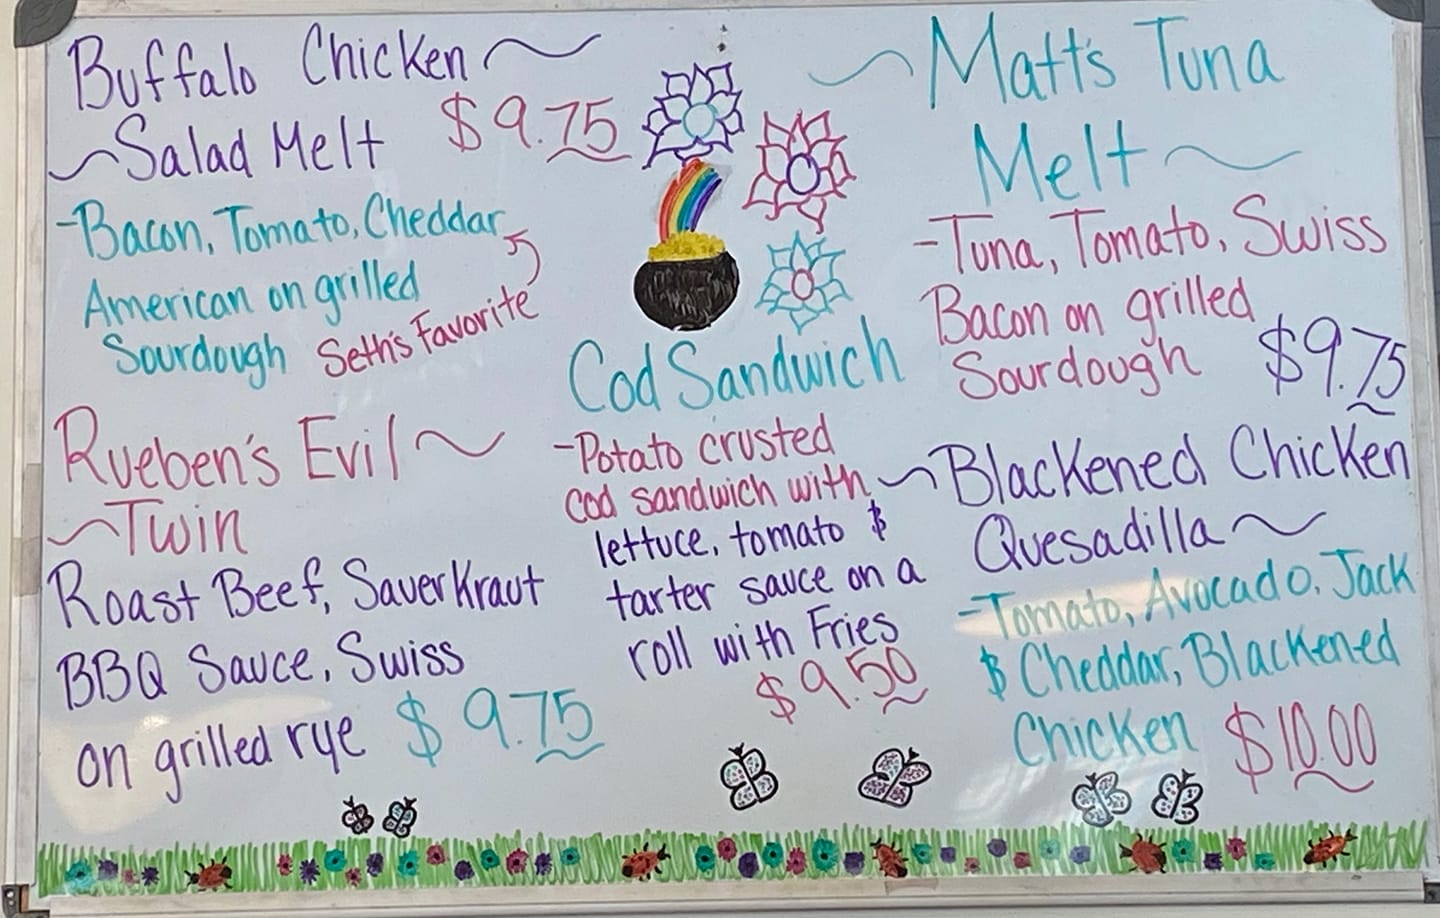 Buffalo Chicken
Salad Melt $9.75
-Bacon, Tomato, Cheddar
American on grilled
Sourdough Seth's Favorite
Rueben's Evil
Twin
Roast Beef, Sauerkraut
BBQ Sauce, Swiss
on grilled rye $9.75
Cod Sandwich
-Potato crusted
cod sandwich with
lettuce, tomato &
tarter sauce on a
roll with Fries
$9.50
Matt's Tuna
Melt
-Tuna, Tomato, Swiss
Bacon on grilled
Sourdough $9.75
Blackened Chicken
Quesadilla
-Tomato, Avocado, Jack
& Cheddar, Blackened
Chicken $10.00